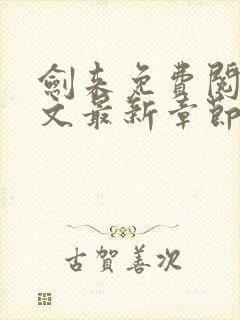 劍来免費閱
文最新章節
古賀善次